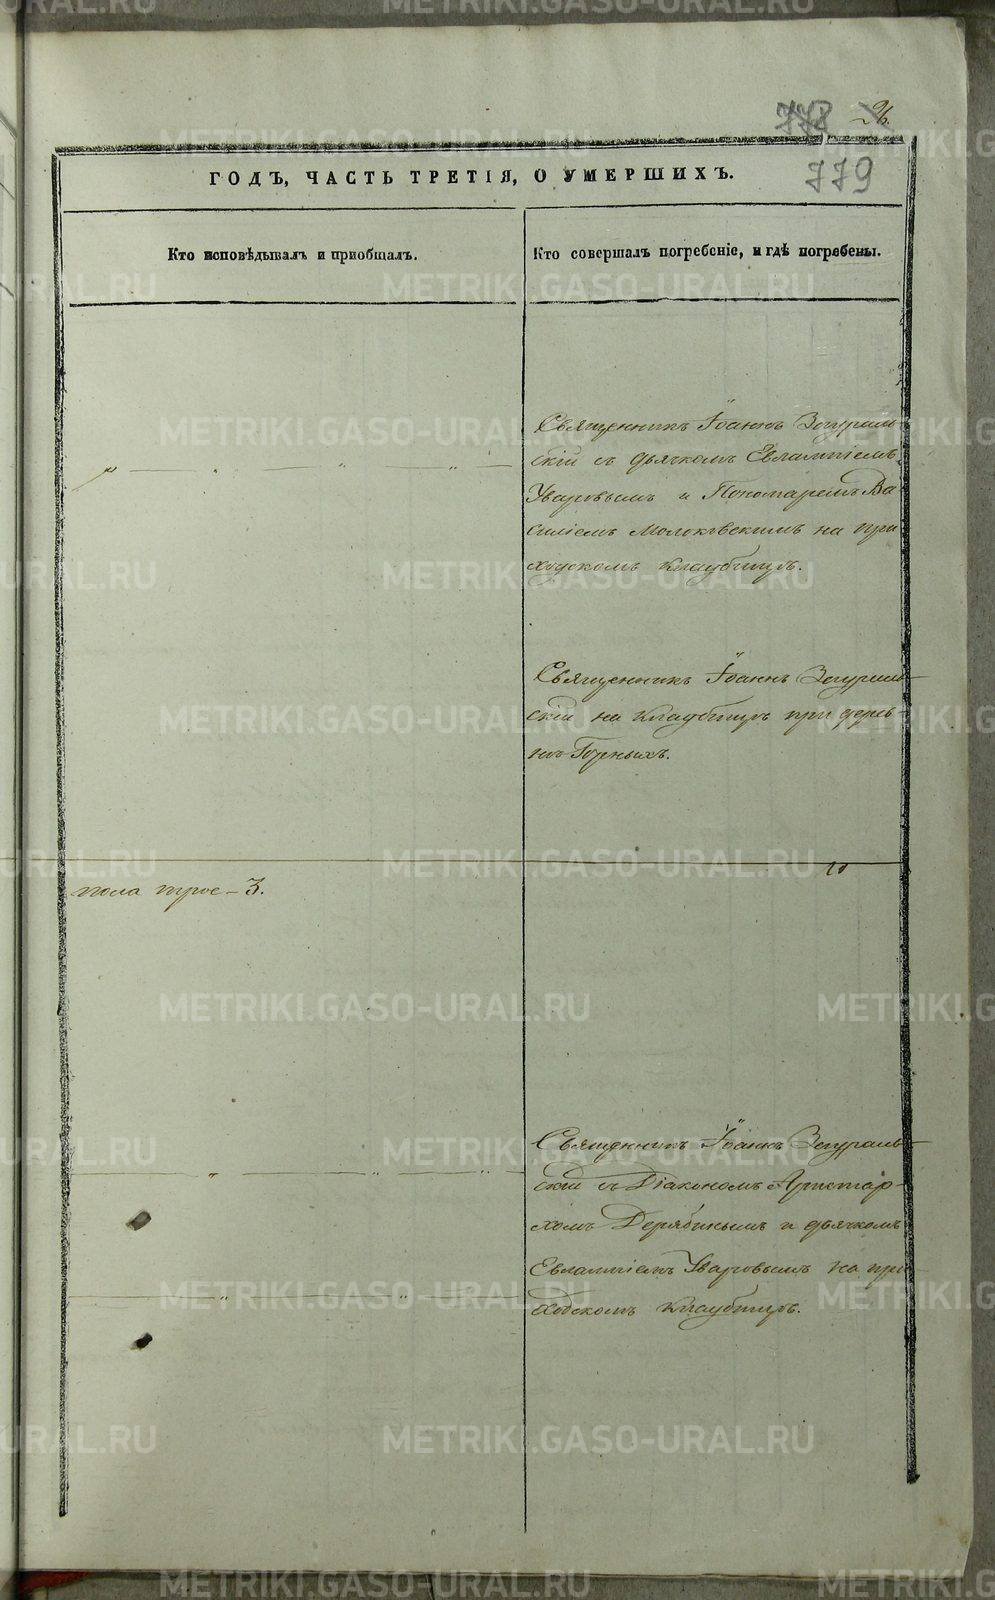 778 26.
779
ГОДЪ, ЧАСТЬ ТРЕТІЯ, О УМЕРШИХЪ.
Кто исповѣдывалъ и пріобщалъ.
Кто совершалъ погребеніе, и гдѣ погребены.
Священникъ Іоаннъ Заураль-
скій съ дьячкомъ Евлампіемъ
Уваровымъ и Пономаремъ Ва-
силіемъ Молоковскимъ на при-
ходскомъ кладбищѣ.
Священникъ Іоаннъ Заураль-
скій на кладбищѣ при дерев
нѣ Горныхъ.
пола трое - 3.
Священникъ Іоаннъ Заураль-
скій съ Діакономъ Аристар-
хомъ Дерябинымъ и дьячкомъ
Евлампіемъ Уваровымъ на при
ходскомъ кладбищѣ.
METRIKI.GASO-URAL.RU